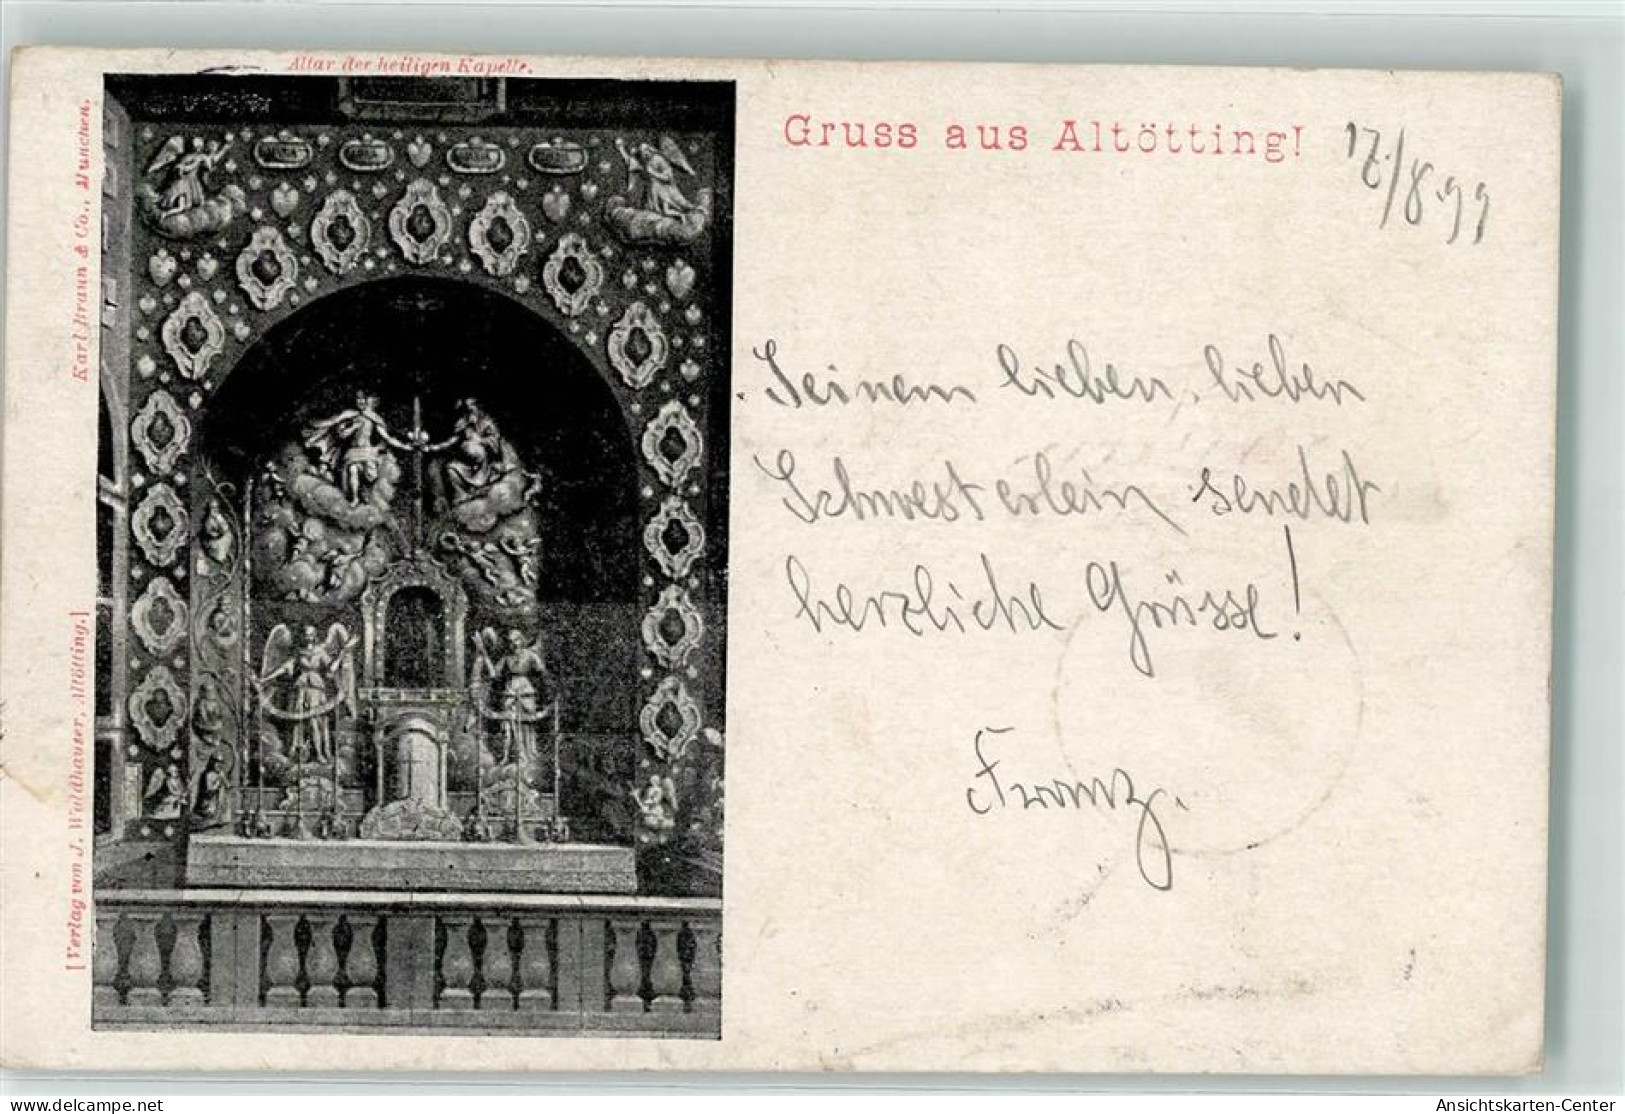 Altar der heiligen Kapelle.
Karl Braun & Co., München.
[Verlag von J. Waldhauser, Altötting.]
Gruss aus Altötting!
17./8.99
Seinem lieben, lieben
Schwesterlein sendet
herzliche Grüsse!
Franz.
Ansichtskarten-Center
www.delcampe.net